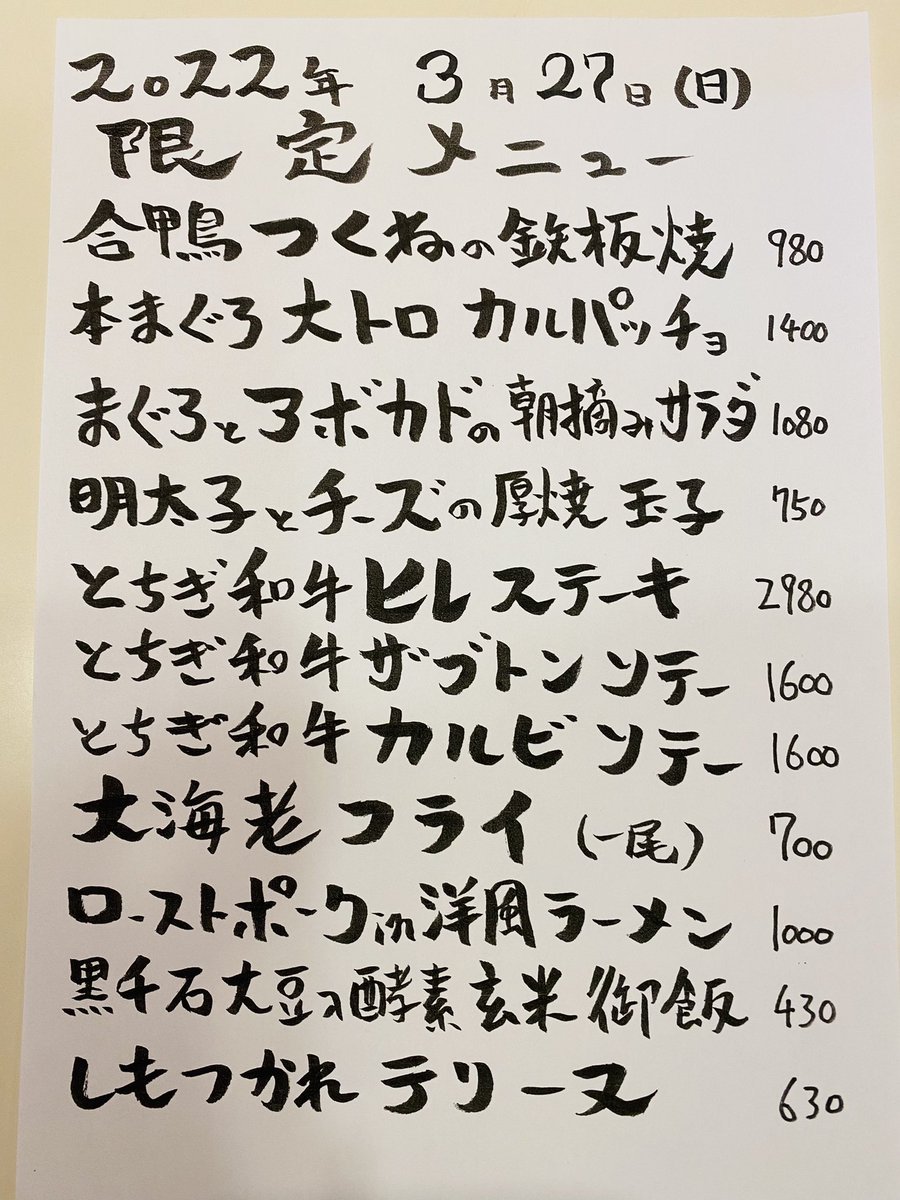 2022年 3月27日(日)
限定メニュー
合鴨つくねの鉄板焼 980
本まぐろ大トロ カルパッチョ 1400
まぐろとアボカドの朝摘みサラダ 1080
明太子とチーズの厚焼玉子 750
とちぎ和牛ヒレステーキ 2980
とちぎ和牛ザブトンソテー 1600
とちぎ和牛カルビソテー 1600
大海老フライ(一尾) 700
ローストポークin洋風ラーメン 1000
黒千石大豆の酵素玄米御飯 430
しもつかれテリーヌ 630